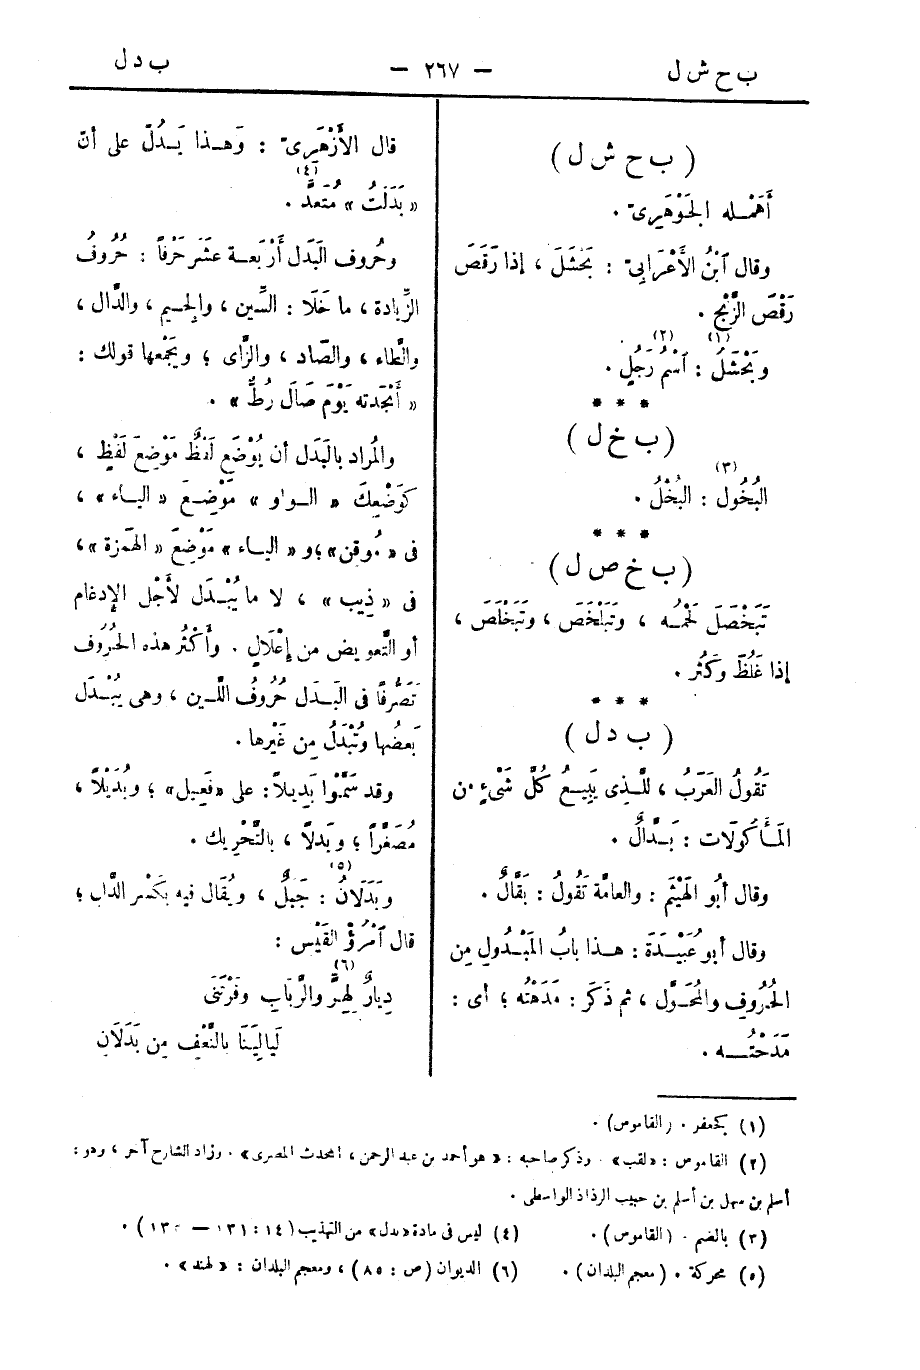 ب ح ش ل
— ٢٦٧ —
ب د ل
( ب ح ش ل )
أَهْمَلَه الجَوْهَرِىّ .
وقال ٱبْنُ الأَعْرَابِىّ : بَحْشَلَ ، إذا رَقَصَ
رَقْصَ الزَّنْج .
وبَحْشَلُ (١) : ٱسْمُ رَجُلٍ (٢) .
* * *
( ب خ ل )
البُخُول (٣) : البُخْلُ .
* * *
( ب خ ص ل )
تَبَخْصَلَ لَحْمُه ، وتَبَلْخَصَ ، وتَبَخْلَصَ ،
إذا غَلُظَ وكَثُر .
* * *
( ب د ل )
تَقُولُ العَرَبُ ، للَّذِى يَبِيعُ كُلَّ شَىْءٍ من
المَأْكُولَات : بَدَّالٌ .
وقال أَبُو الهَيْثَم : والعامَّة تَقُولُ : بَقَّالٌ .
وقال أبو عُبَيْدَةَ : هذا بابُ المَبْدُولِ مِن
الحُرُوفِ والمُحَوَّل ، ثم ذَكَرَ : مَدَهْتُه ؛ أى :
مَدَحْتُه .
قال الأَزْهَرِىّ : وَهذا يَدُلّ على أنّ
« بَدَلْتُ » مُتَعَدٍّ (٤) .
وحُروف البَدَل أَرْبَعة عَشَر حَرْفاً : حُرُوفُ
الزِّيادة ، ما خَلَا : السِّين ، والجِيم ، والدَّال ،
والطَّاء ، والصَّاد ، والزَّاى ؛ ويَجْمَعها قولك :
« أَنْجَدته يَوْمَ صَالَ زُطٌّ » .
والمُراد بالبَدَل أن يُوْضَع لَفْظٌ مَوْضِعَ لَفْظٍ ،
كَوَضْعِكَ « الواو » مَوْضِعَ « الياء » ،
فى « مُوقن» ؛ و « الياء » مَوْضِعَ « الهَمْزة » ،
فى « ذِيب » ، لا ما يُبْدَل لأَجْل الإدغام
أو التَّعويض من إعْلَالٍ . وأَكْثُر هذه الحُرُوف
تَصَرُّفًا فى البَدَل حُرُوفُ اللِّين ، وهى يُبْدَل
بَعضُها وتُبْدَلُ مِن غَيْرها .
وقد سَمَّوْا بَدِيلاً : على «فَعِيل» ؛ وبُدَيْلاً ،
مُصَغَّراً ؛ وبَدلاً ، بالتَّحْرِيك .
وبَدَلَانُ (٥) : جَبلٌ ، ويُقَال فيه بكَسْر الدّال ؛
قال ٱمْرُؤُ القَيْس :
دِيارٌ لِهِرٍّ (٦) والرَّبَابِ وفَرْتَنَى
لَيالِيَنَا بالنَّعْفِ مِن بَدَلَانِ
(١) كجعفر . (القاموس) .
(٢) القاموس : «لقب» . وذكر صاحبه : « هو أحمد بن عبد الرحمن ، المحدث المصرى» . وزاد الشارح آخر ، وهو :
أسلم بن سهل بن أسلم بن حبيب الرذاذ الواسطى .
(٣) بالضم . (القاموس) .
(٤) ليس فى مادة «بدل» من التهذيب (١٤ : ١٣١ –
(٥) محركة . (معجم البلدان) .
(٦) الديوان (ص : ٨٥) ، ومعجم البلدان : « لهند» .